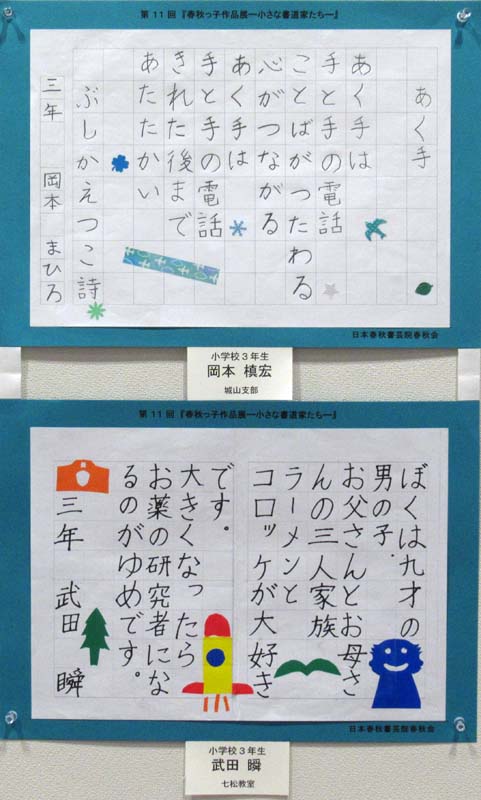 第11回『春秋っ子作品展ー小さな書道家たちー』
あく手
あく手は
手と手の電話
ことばがつたわる
心がつながる
あく手は
手と手の電話
きれた後まで
あたたかい
ぶしかえつこ詩
三年 岡本 まひろ
日本春秋書芸院春秋会
小学校3年生
岡本 槙宏
城山支部
第11回『春秋っ子作品展ー小さな書道家たちー』
ぼくは九才の
男の子。
お父さんとお母さ
んの三人家族
ラーメンと
コロッケが大好き
です。
大きくなったら
お薬の研究者にな
るのがゆめです。
三年 武田 瞬
日本春秋書芸院春秋会
小学校3年生
武田 瞬
七松教室